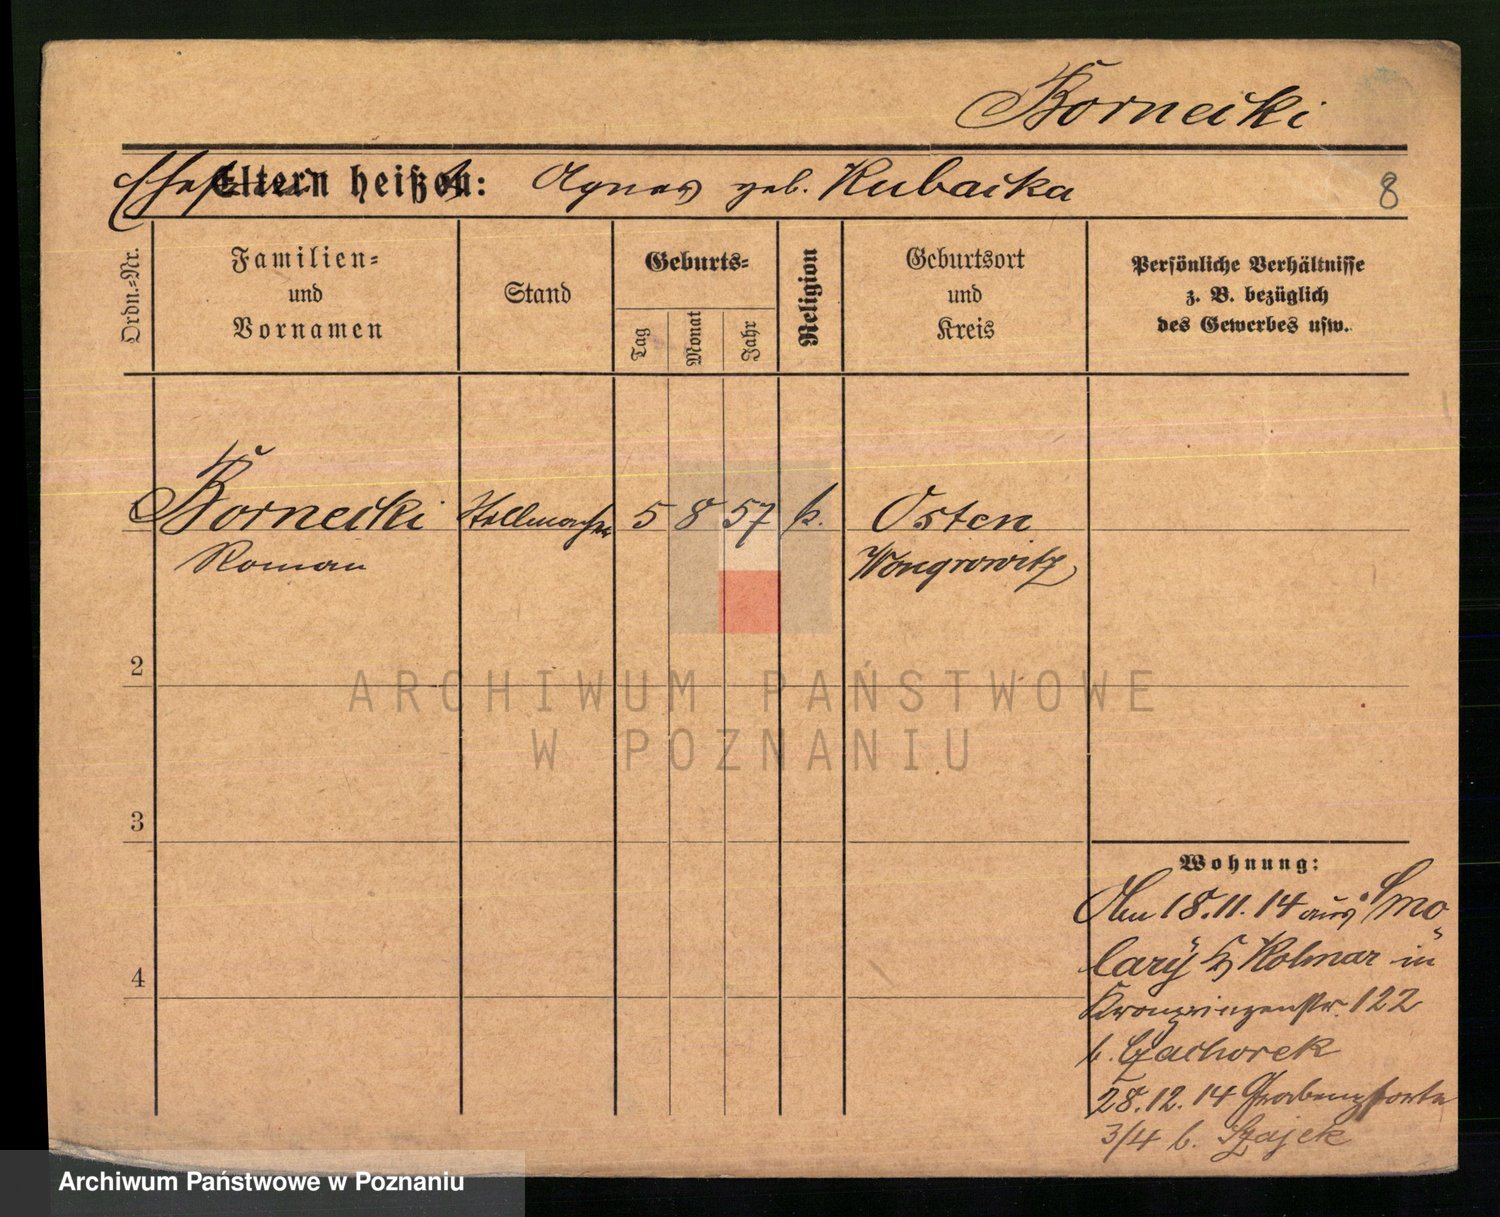 Bornecki
Eltern heißen: Agnes geb. Kubacka
8
Ordn.-Nr.
Familien-
und
Vornamen
Stand
Geburts-
Tag
Monat
Jahr
Religion
Geburtsort
und
Kreis
Persönliche Verhältnisse
z. B. bezüglich
des Gewerbes usw.
Bornecki Stellmacher 5 8 57 k. Osten
Roman Wongrowitz
2
3
4
Wohnung:
Am 18.11.14 aus Smo
lary Kolmar in
Kronprinzenstr. 122
b. Czachorek
28.12.14 Grabenpforte
3/4 b. Szajek
ARCHIWUM PAŃSTWOWE
W POZNANIU
Archiwum Państwowe w Poznaniu